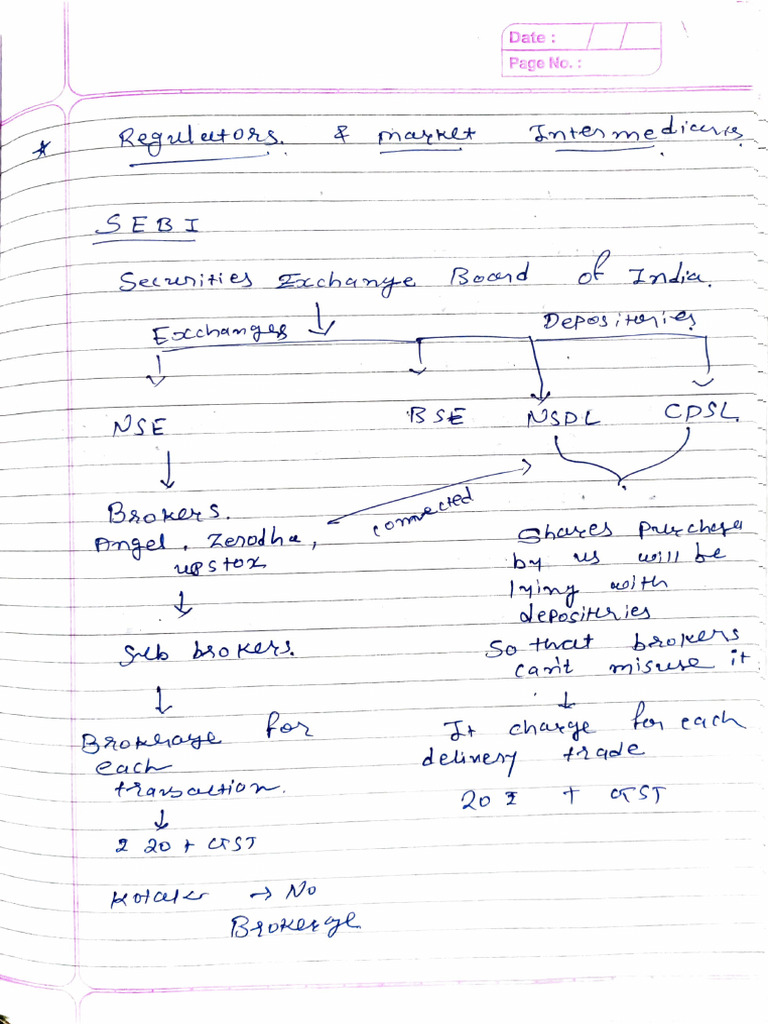 Date : / /
Page No. :
* Regulators & Market Intermediaries
SEBI
Securities Exchange Board of India.
Exchanges
Depositories
NSE
BSE
NSDL
CDSL
Brokers.
Angel, Zerodha,
upstox
connected
Sub brokers.
Brokerage for
each
transaction.
₹ 20 + GST
Kotak → No
Brokerge
Shares purchase
by us will be
lying with
depositeries
So that brokers
can't misuse it
It charge for each
delivery trade
20 ₹ + GST